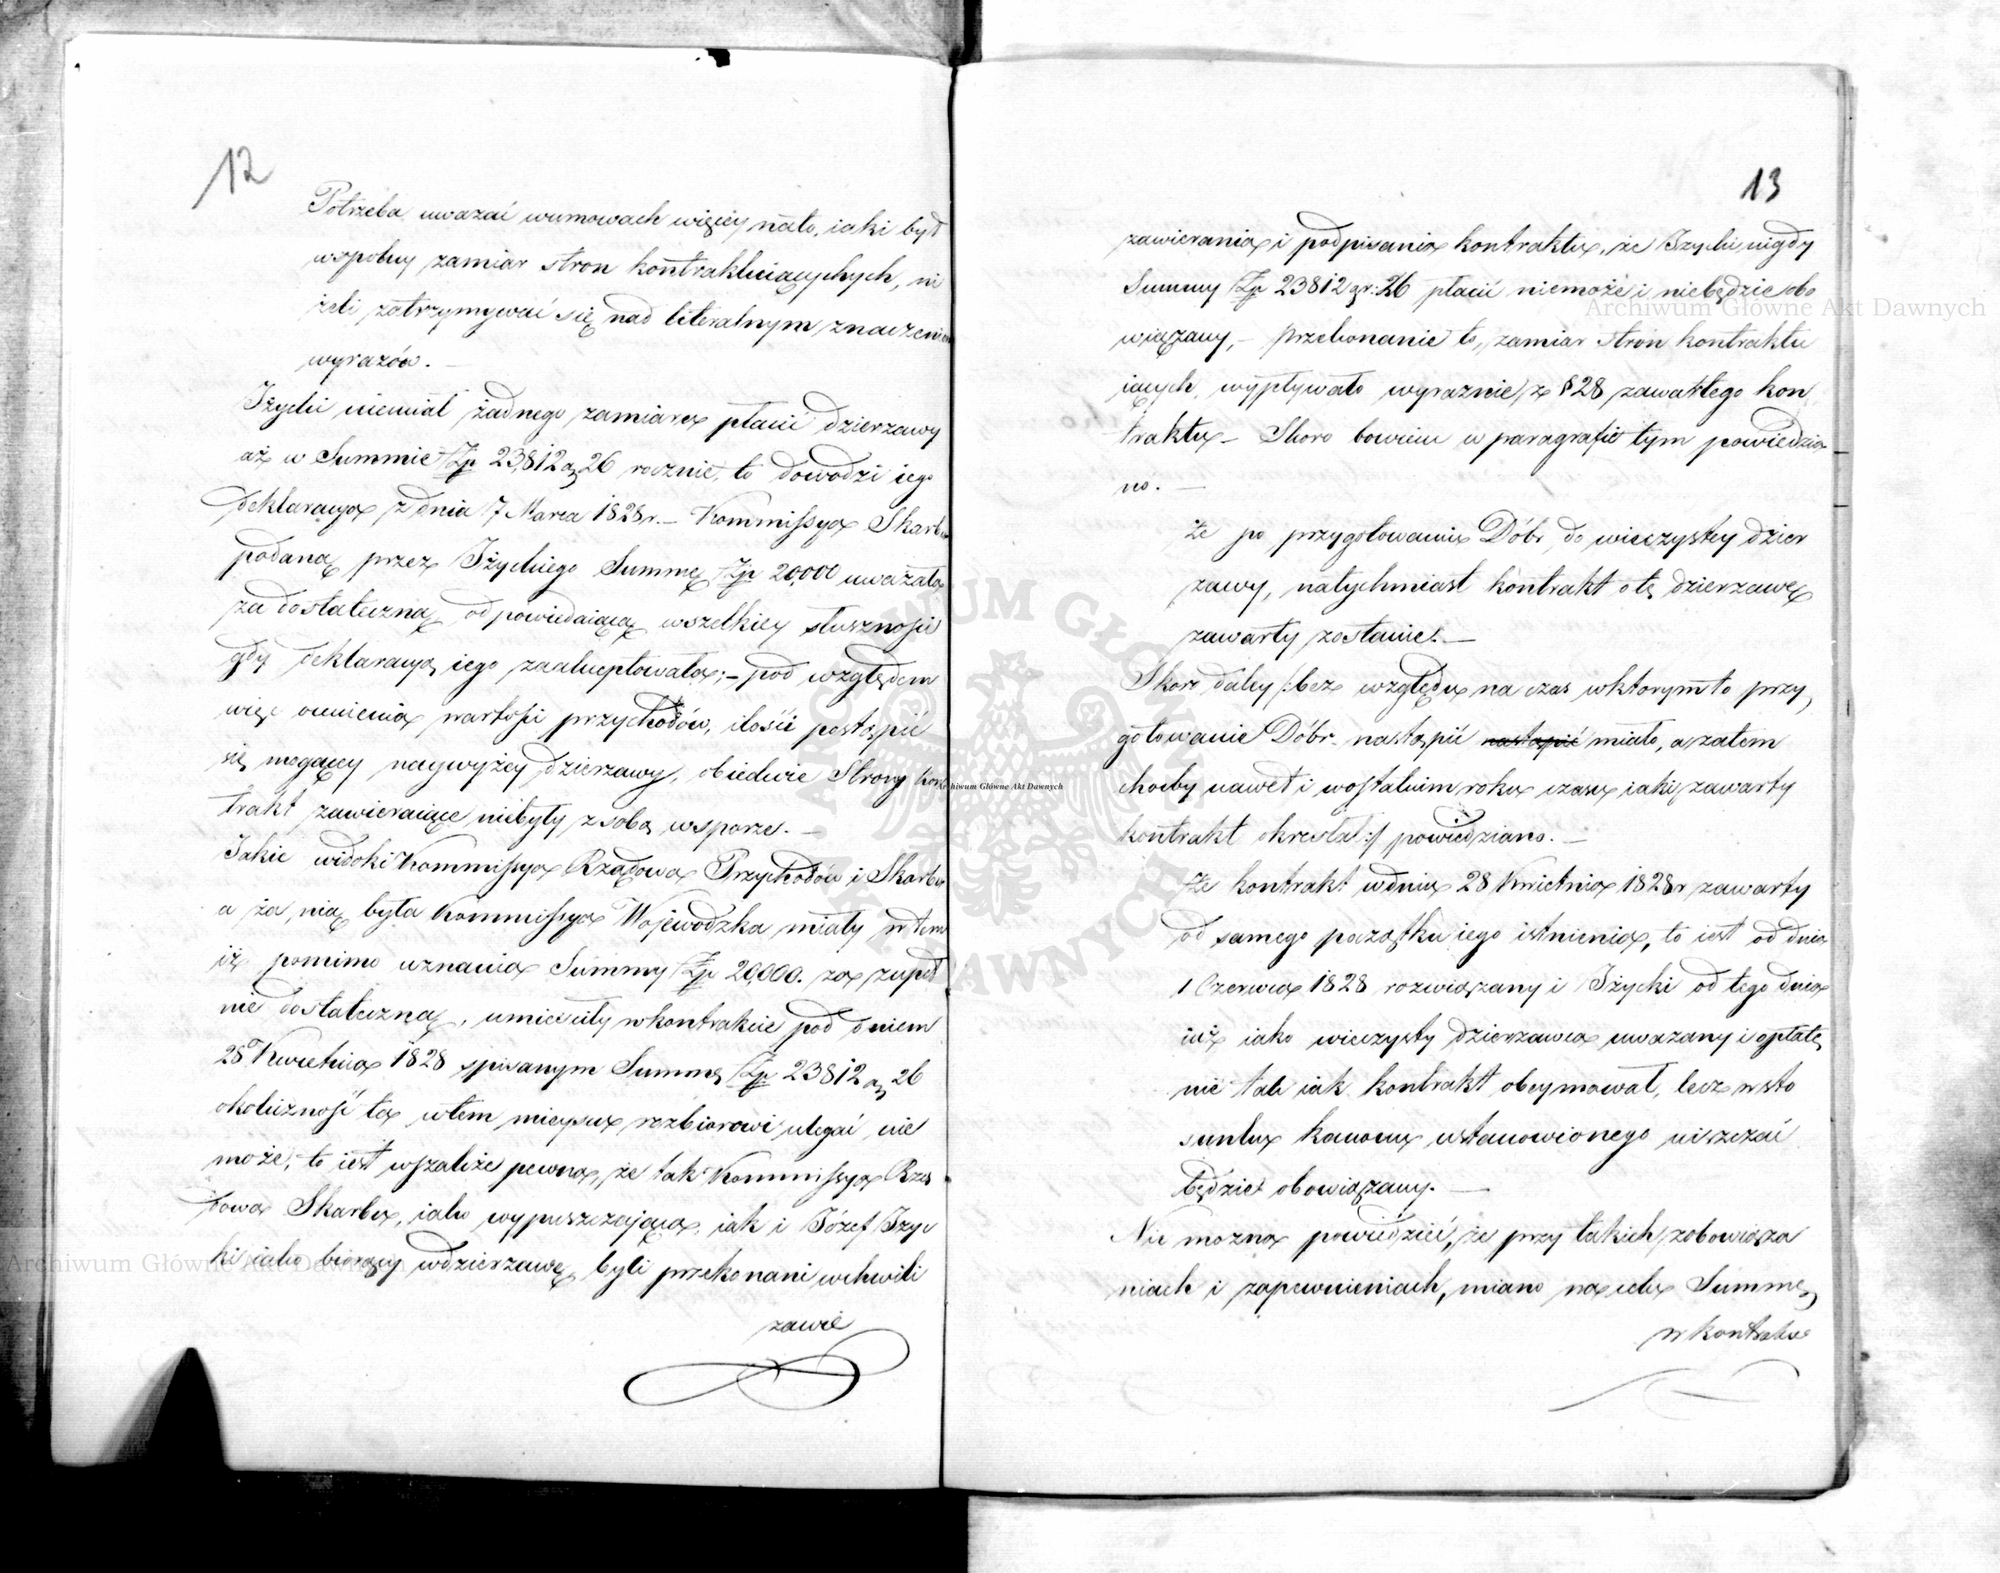 12
Potrzeba uwazać wumowach więcéy nato, iaki był
wspolny zamiar stron kontraktuiących, ni
żeli zatrzymywać się nad literalnym znaczeniem
wyrazów. —
Iżycki niemiał żadnego zamiaru płacić dzierzawy
aż w Summie Zp 23,812 gr 26 rocznie, to dowodzi iego
deklaracya z dnia 7 Marca 1828 r. — Kommissya Skarbu
podaną przez Iżyckiego Summę Zp 20,000 uważała
za dostateczną, odpowiedaiącą wszelkiey słuszności
gdy deklaracyą iego zaakceptowała; — pod względem
więc ocenienia wartości przychodów, ilości postąpić
się mogącey naywyżey dzierzawy, obiedwie Strony kon
trakt zawieraiące niebyły z sobą w sporze. —
Jakie widoki Kommissya Rządowa Przychodów i Skarbu
a za nią była Kommissya Wojewodzka miały w tem
iż pomimo uznania Summy Zp 20,000. za zupeł
nie dostateczną, umieściły w kontrakcie pod dniem
28 Kwietnia 1828 spisanym Summę Zp 23812 gr 26
okoliczność ta wtem mieyscu rozbiorowi ulegać nie
może, to iest wszakże pewna, że tak Kommissya Rzą
dowa Skarbu, iako wypuszczająca, iak i Józef Iżyc
ki iako biorący wdzierzawę byli przekonani wchwili
zawie
13
zawierania i podpisania kontraktu, że Iżycki nigdy
Summy Zp 23812 gr: 26 płacić niemoże i niebędzie obo
wiązany, — przekonanie to, zamiar stron kontraktu
iących, wypływało wyraznie z § 28 zawartego kon
traktu — Skoro bowiem w paragrafie tym powiedzia
no. —
że po przygotowaniu Dóbr do wieczystey dzier
zawy, natychmiast kontrakt o tę dzierzawę
zawarty zostanie. —
Skoro daley /:bez względu na czas wktorym to przy
gotowanie Dóbr nastąpić nastąpić miało, a zatem
choćby nawet i wostatnim roku czasu iaki zawarty
kontrakt okreslał:/ powiedziano. —
że kontrakt wdniu 28 Kwietnia 1828 r zawarty
od samego początku iego istnienia, to iest od dnia
1 Czerwca 1828 rozwiązany i Iżycki od tego dnia
iuż iako wieczysty dzierzawca uwazany i opłatę
nie tak iak kontrakt obeymował, lecz w sto
sunku kanonu ustanowionego uiszczać
będzie obowiązany. —
Nie można powiedzieć, że przy takich zobowiąza
niach i zapewnieniach, miano na celu Summę
w kontrakcie
Archiwum Główne Akt Dawnych
Archiwum Główne Akt Dawnych
Archiwum Główne Akt Dawnych
ARCHIWUM GŁÓWNE AKT DAWNYCH